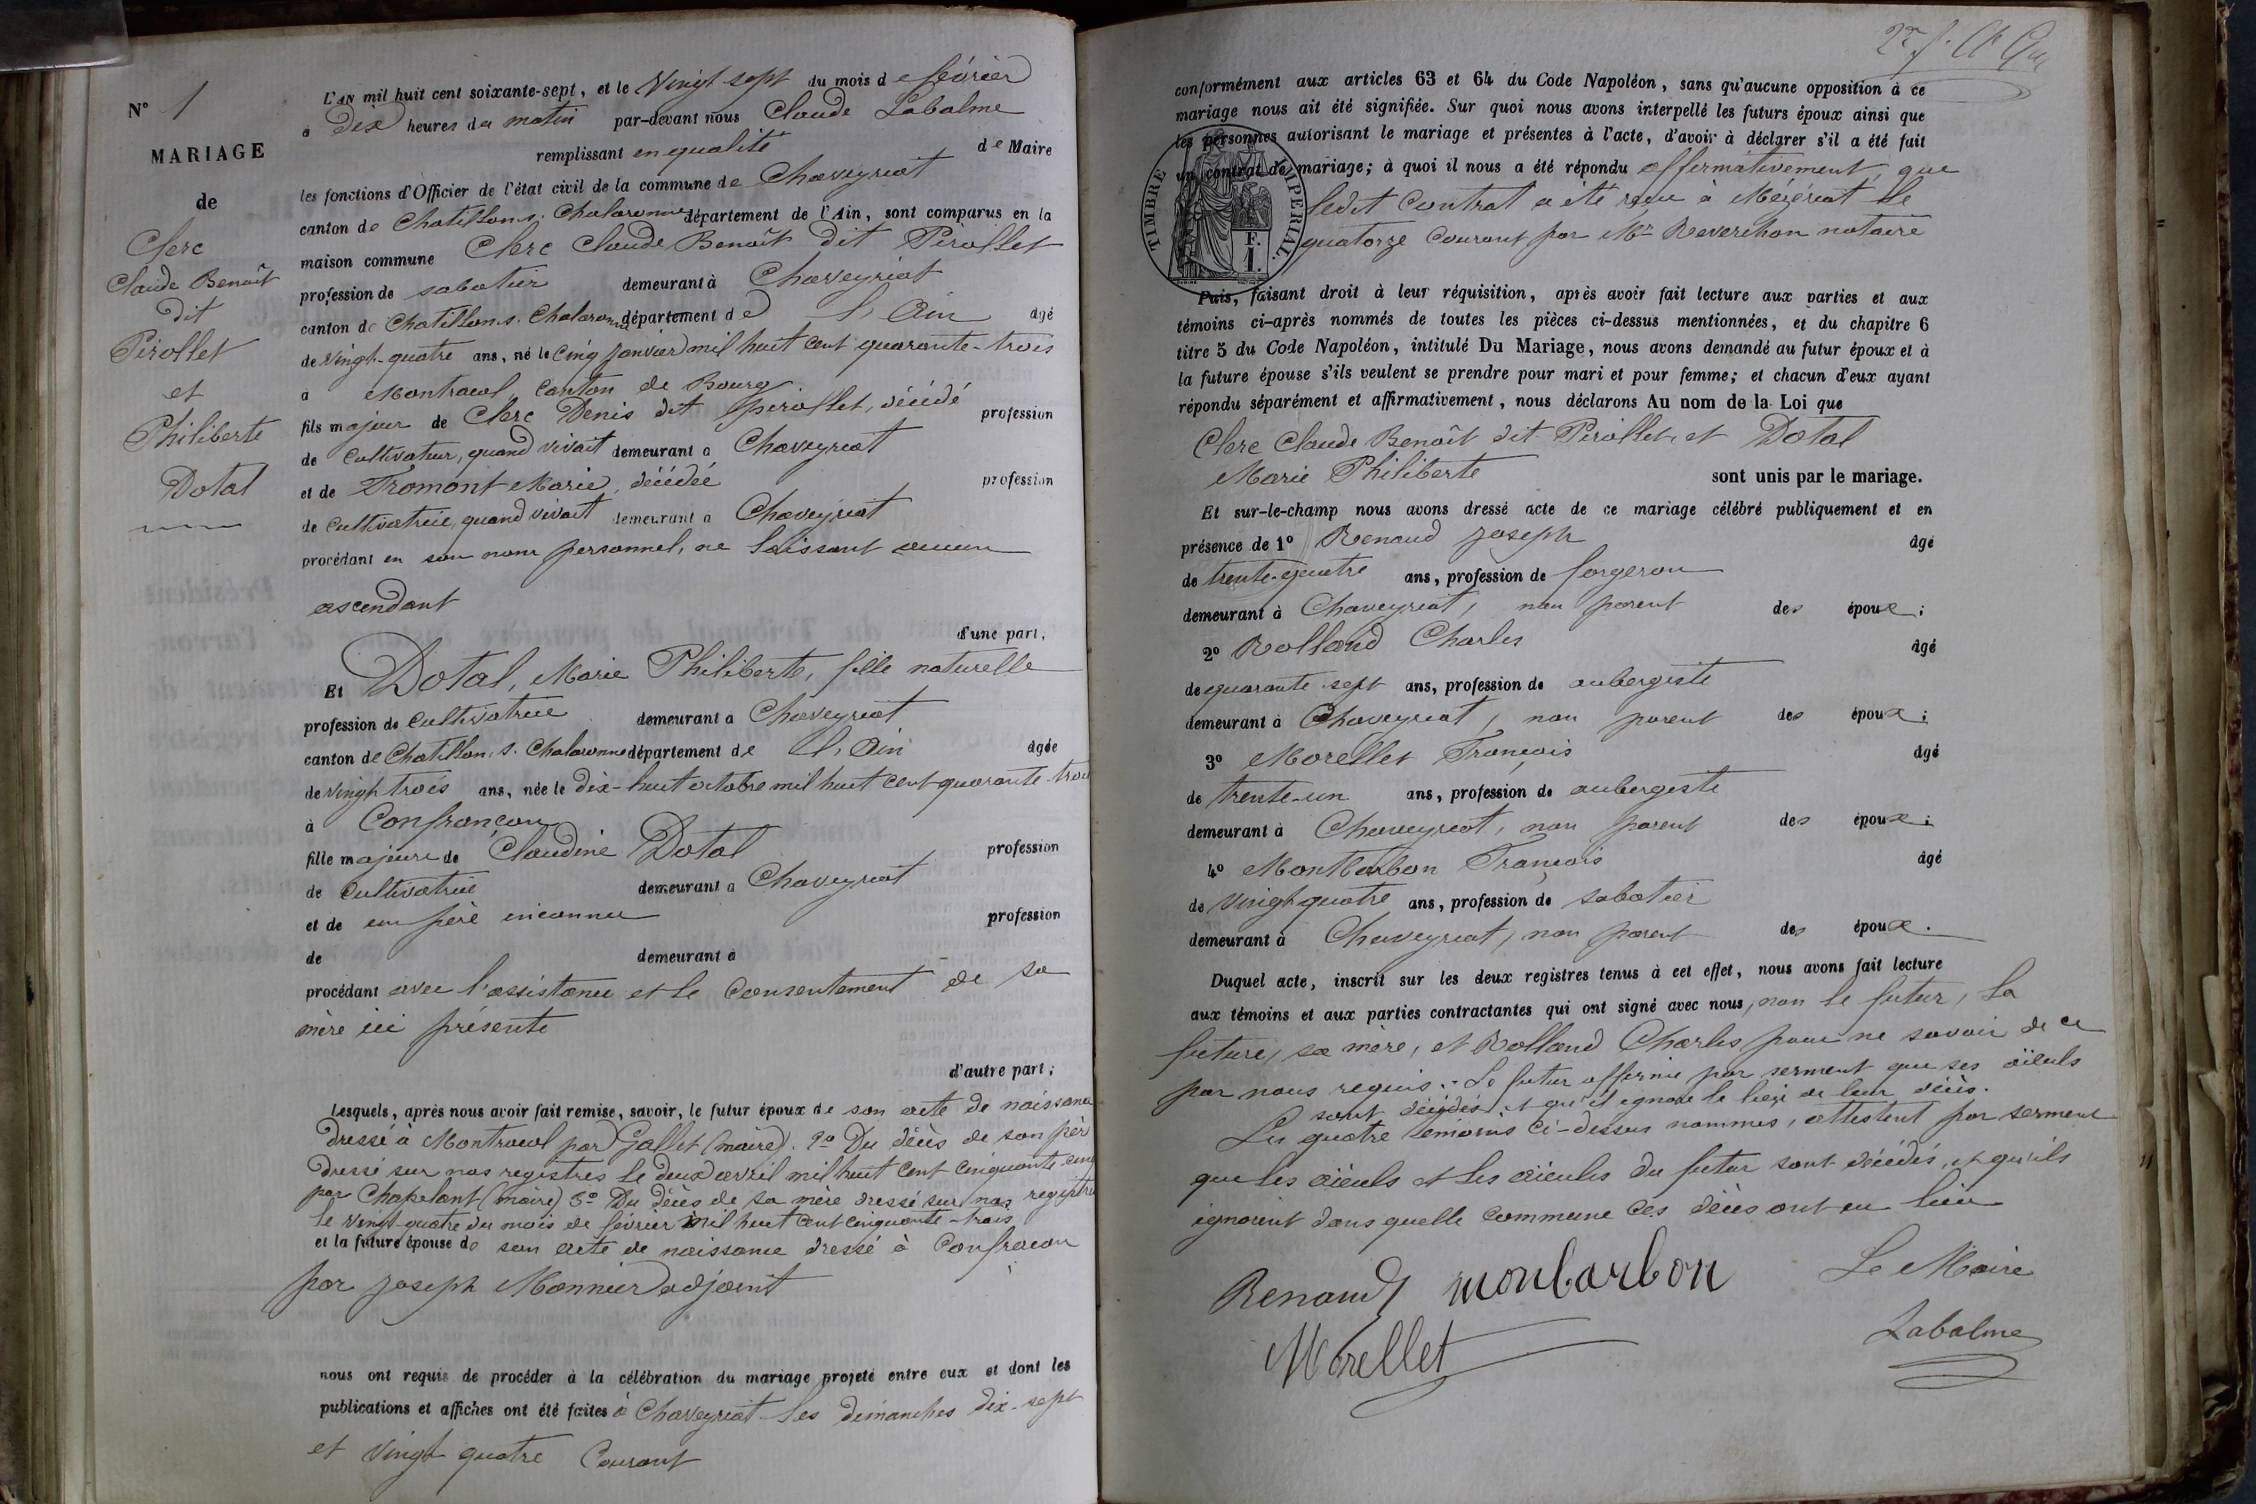 N° 1
MARIAGE
de
Clerc
Claude Benoît
dit
Pérollet
et
Philiberte
Dotal
L'AN mil huit cent soixante-sept, et le vingt sept du mois de février
à dix heures du matin par-devant nous Claude Labalme
remplissant en qualité de Maire
les fonctions d'Officier de l'état civil de la commune de Chaveyriat
canton de Chatillon s. Chalaronne département de l'Ain, sont comparus en la
maison commune Clerc Claude Benoît dit Pérollet
profession de sabotier demeurant à Chaveyriat
canton de Chatillon s. Chalaronne département de l'Ain âgé
de vingt-quatre ans, né le cinq janvier mil huit cent quarante-trois
à Montracol canton de Bourg
fils majeur de Clerc Denis dit Pérollet, décédé profession
de cultivateur, quand vivait demeurant à Chaveyriat
et de Fromont Marie, décédée profession
de cultivatrice, quand vivait demeurant à Chaveyriat
procédant en son nom personnel, ne laissant aucun
ascendant
d'une part,
Et Dotal, Marie Philiberte, fille naturelle
profession de cultivatrice demeurant à Chaveyriat
canton de Chatillon s. Chalaronne département de l'Ain âgée
de vingt trois ans, née le dix-huit octobre mil huit cent quarante-trois
à Confrançon
fille majeure de Claudine Dotal profession
de cultivatrice demeurant à Chaveyriat
et de un père inconnu profession
de demeurant à
procédant avec l'assistance et le consentement de sa
mère ici présente
d'autre part;
Lesquels, après nous avoir fait remise, savoir, le futur époux de son acte de naissance
dressé à Montracol par Gallet (maire). 2° Du décès de son père
dressé sur nos registres le deux avril mil huit cent cinquante-cinq
par Chapelant (maire) 3° Du décès de sa mère dressé sur nos registres
le vingt-quatre du mois de février mil huit cent cinquante-trois
et la future épouse de son acte de naissance dressé à Confracon
par Joseph Monnier adjoint
nous ont requis de procéder à la célébration du mariage projeté entre eux et dont les
publications et affiches ont été faites à Chaveyriat les dimanches dix-sept
et vingt quatre courant
conformément aux articles 63 et 64 du Code Napoléon, sans qu'aucune opposition à ce
mariage nous ait été signifiée. Sur quoi nous avons interpellé les futurs époux ainsi que
les personnes autorisant le mariage et présentes à l'acte, d'avoir à déclarer s'il a été fait
un contrat de mariage; à quoi il nous a été répondu affirmativement, que
ledit contrat a été reçu à Mézériat le
quatorze courant par Mr Reverchon notaire
TIMBRE IMPÉRIAL.
F.
1.
Puis, faisant droit à leur réquisition, après avoir fait lecture aux parties et aux
témoins ci-après nommés de toutes les pièces ci-dessus mentionnées, et du chapitre 6
titre 5 du Code Napoléon, intitulé Du Mariage, nous avons demandé au futur époux et à
la future épouse s'ils veulent se prendre pour mari et pour femme; et chacun d'eux ayant
répondu séparément et affirmativement, nous déclarons Au nom de la Loi que
Clerc Claude Benoît dit Pérollet et Dotal
Marie Philiberte sont unis par le mariage.
Et sur-le-champ nous avons dressé acte de ce mariage célébré publiquement et en
présence de 1° Renaud Joseph âgé
de trente-quatre ans, profession de forgeron
demeurant à Chaveyriat, non parent des époux;
2° Rolland Charles âgé
de quarante-sept ans, profession de aubergiste
demeurant à Chaveyriat, non parent des époux;
3° Morellet François âgé
de trente-un ans, profession de aubergiste
demeurant à Chaveyriat, non parent des époux;
4° Montbarbon François âgé
de vingt quatre ans, profession de sabotier
demeurant à Chaveyriat, non parent des époux.
Duquel acte, inscrit sur les deux registres tenus à cet effet, nous avons fait lecture
aux témoins et aux parties contractantes qui ont signé avec nous, non le futur, la
future, sa mère, et Rolland Charles pour ne savoir de ce
par nous requis. Le futur affirme par serment que ses aïeuls
sont décédés et qu'il ignore le lieu de leur décès.
Les quatre témoins ci-dessus nommés, attestent par serment
que les aïeuls et les aïeules du futur sont décédés, et qu'ils
ignorent dans quelle commune ces décès ont eu lieu
Renaud monbarbon Le Maire
Morellet Labalme